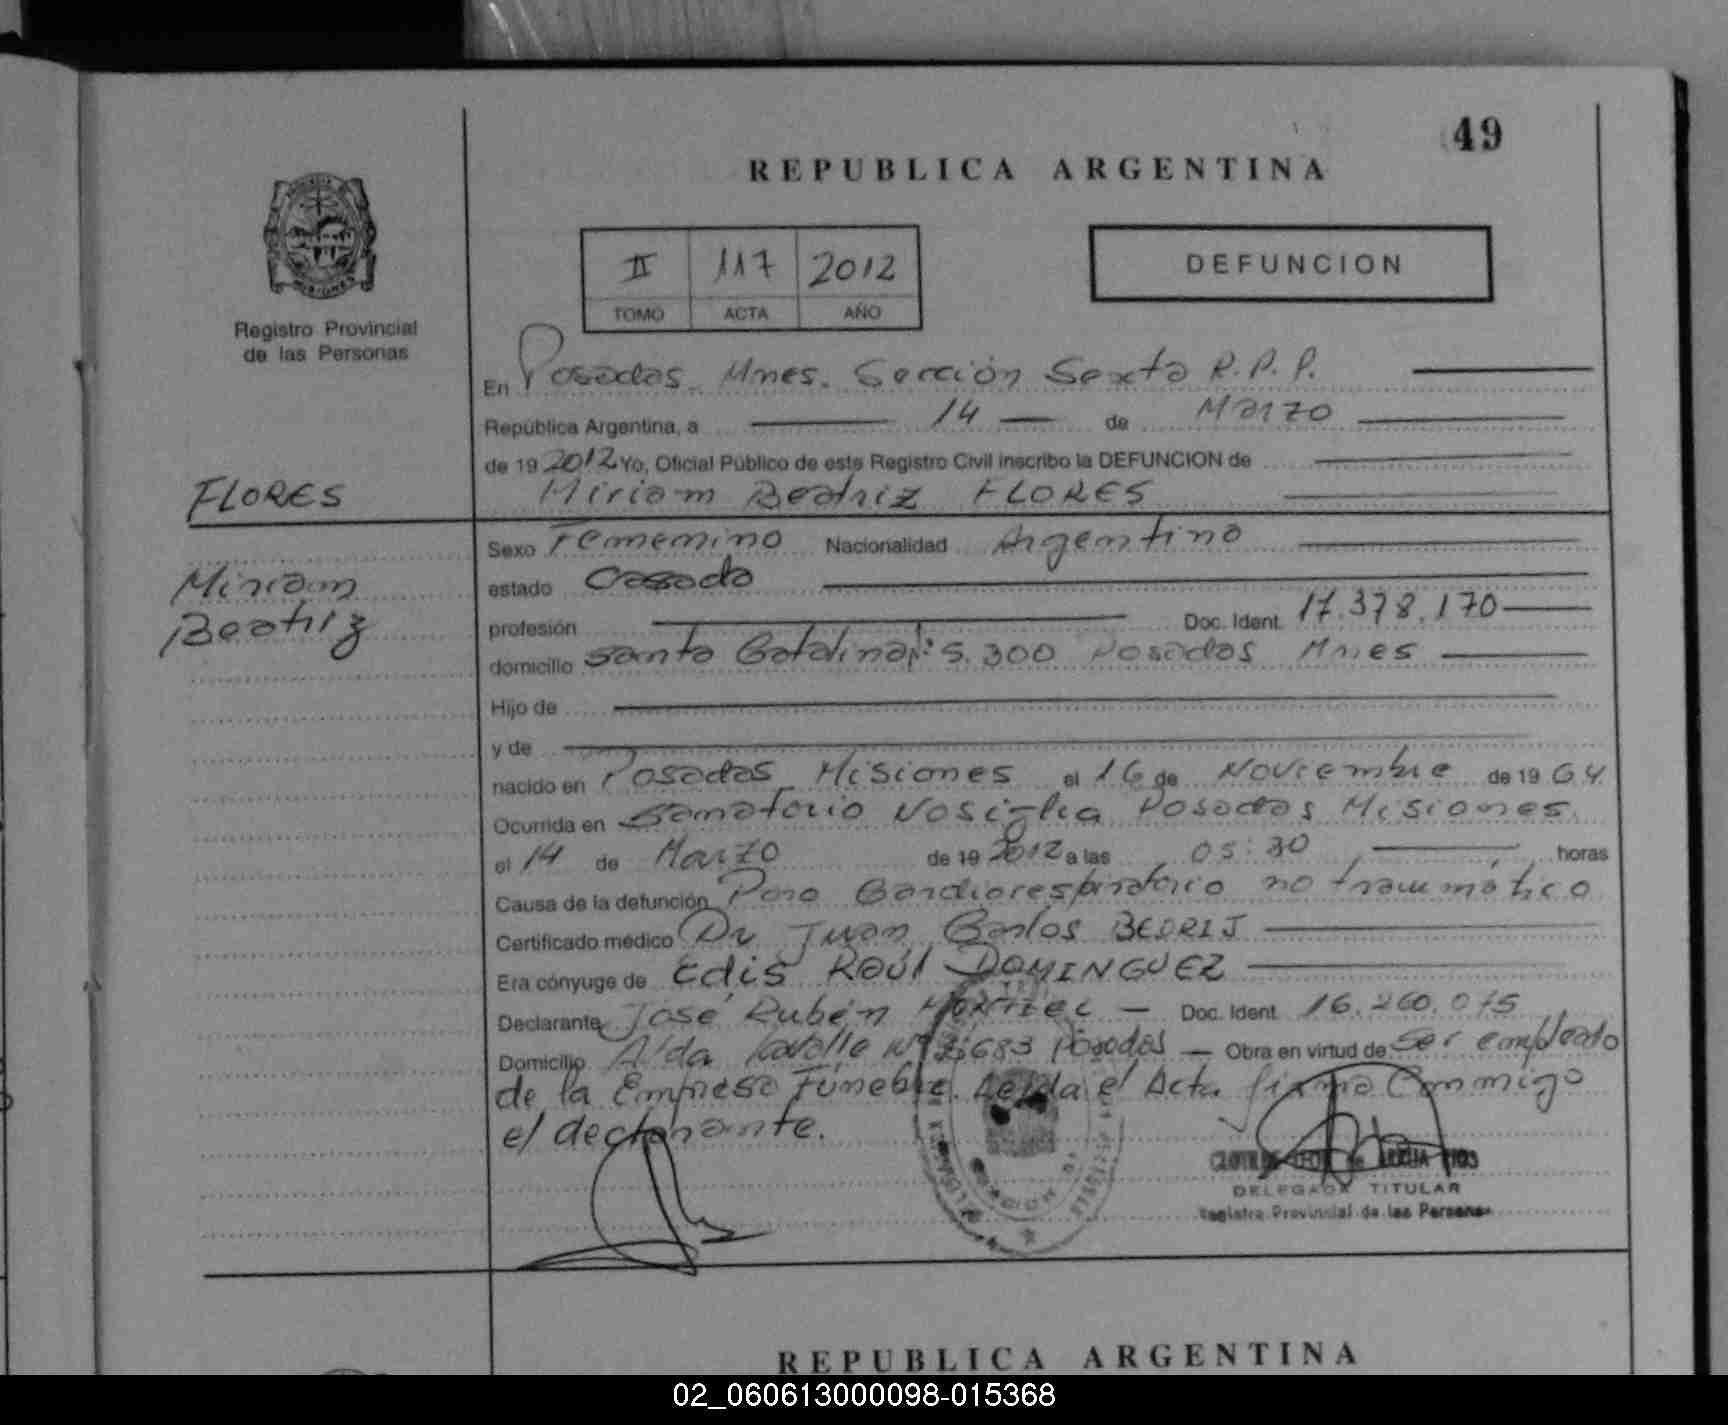 49
REPUBLICA ARGENTINA
II 117 2012
TOMO ACTA AÑO
DEFUNCION
MISIONES
Registro Provincial
de las Personas
En Posadas Mnes. Sección Sexta R.P.P.
República Argentina, a 14 de Marzo
de 19 2012 Yo, Oficial Público de este Registro Civil inscribo la DEFUNCION de
FLORES
Miriam Beatriz FLORES
Sexo Femenino Nacionalidad Argentina
Miriam
Beatriz
estado Casada
profesión Doc. Ident. 17.378.170
domicilio Santa Catalina N: S. 300 Posadas Mnes
Hijo de
y de
nacido en Posadas Misiones el 16 de Noviembre de 19 64
Ocurrida en Sanatorio Nosiglia Posadas Misiones.
el 14 de Marzo de 19 2012 a las 05:30 horas
Causa de la defunción Paro Cardiorespiratorio no traumático
Certificado médico Dr Juan Carlos BEDRIJ
Era cónyuge de Edis Raúl DOMINGUEZ
Declarante José Rubén Doc. Ident. 16.260.075
Domicilio Alda Lavalle Nº 683 Posadas Obra en virtud de Ser empleado
de la Empresa Fúnebre. Leída el Acta firma Conmigo
el declarante.
DELEGADA TITULAR
Registro Provincial de las Personas
REPUBLICA ARGENTINA
02_060613000098-015368